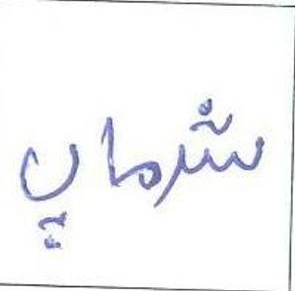 شرماي